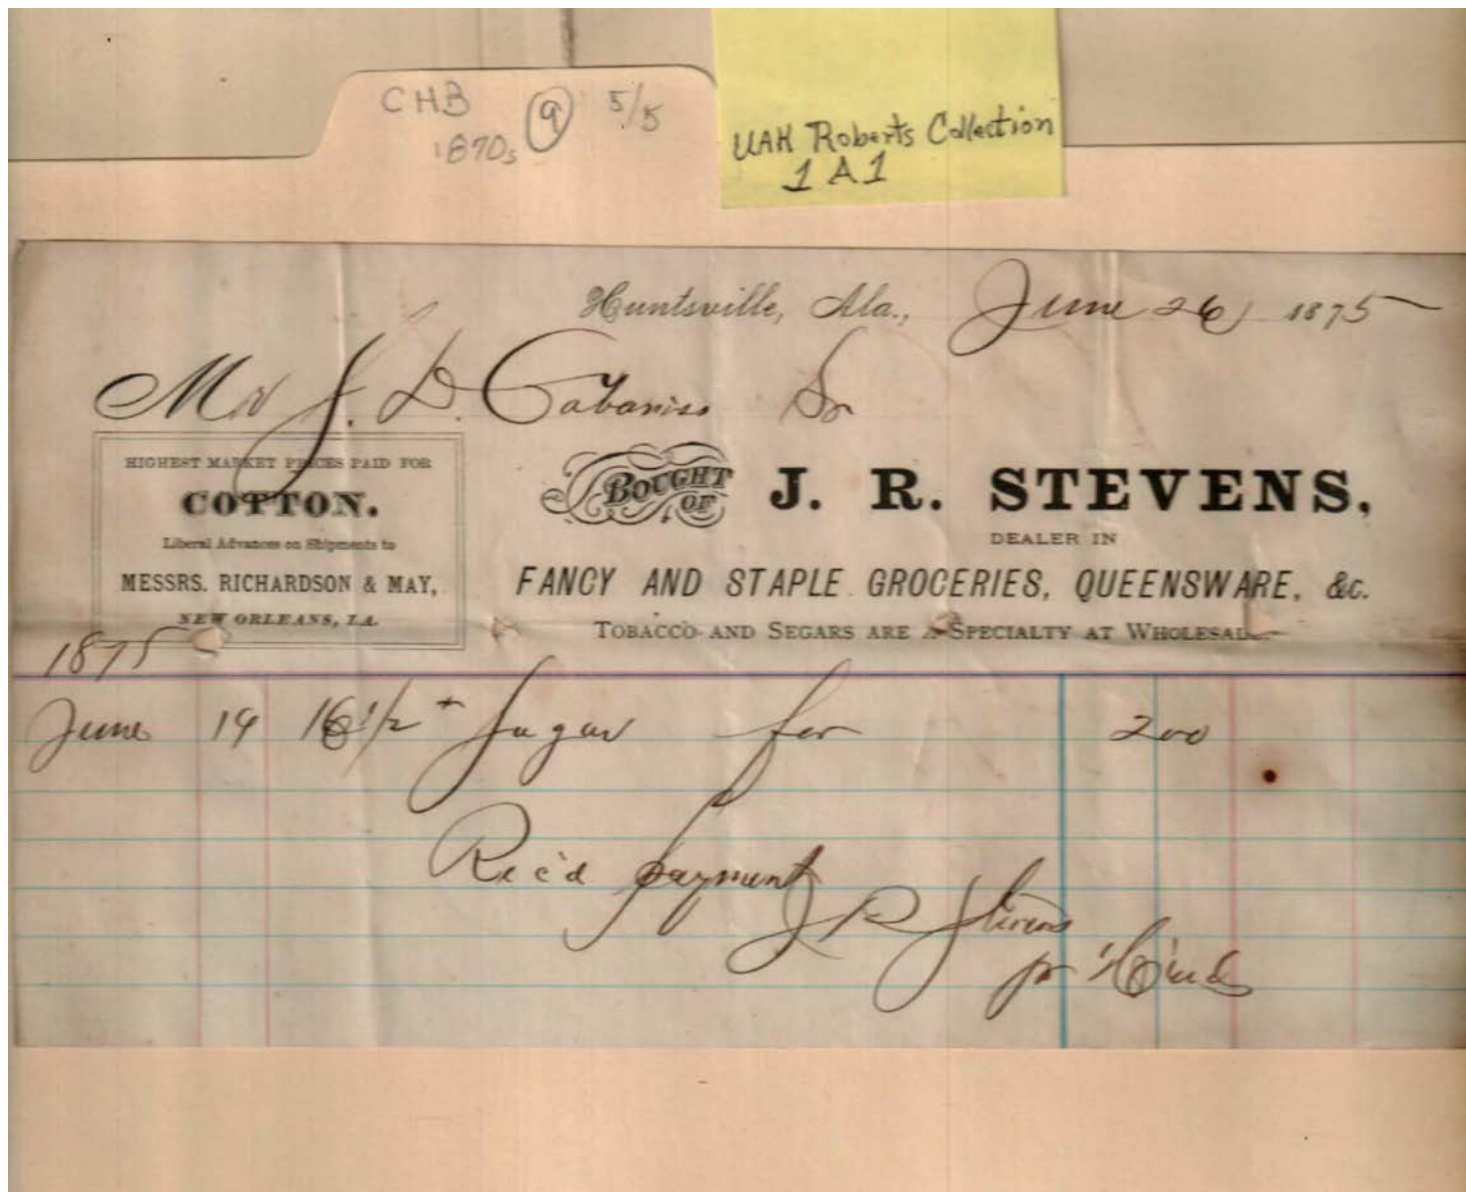 CHB 9 5/5
1870s
UAH Roberts Collection
1A1
Huntsville, Ala., June 26 1875
Mr J. D. Cabaniss Sr
HIGHEST MARKET PRICES PAID FOR
COTTON.
Liberal Advances on Shipments to
MESSRS. RICHARDSON & MAY,
NEW ORLEANS, LA.
BOUGHT OF J. R. STEVENS,
DEALER IN
FANCY AND STAPLE GROCERIES, QUEENSWARE, &c.
TOBACCO AND SEGARS ARE A SPECIALTY AT WHOLESALE.
1875
June 19 16 1/2 Sugar for 200
Rec'd payment
J R Stevens
pr